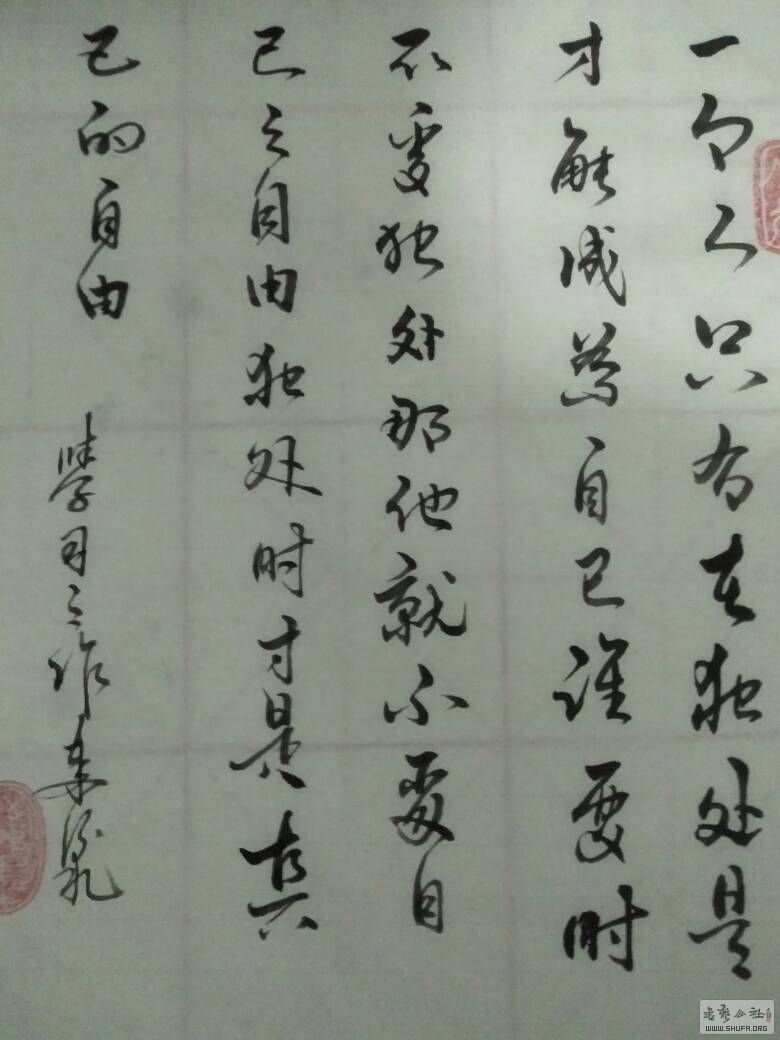 一个人只有在独处是
才能成為自己谁要时
不爱独处那他就不爱自
己之自由独处时才是真
己的自由
學习之作
書藝公社
WWW.SHUFA.ORG